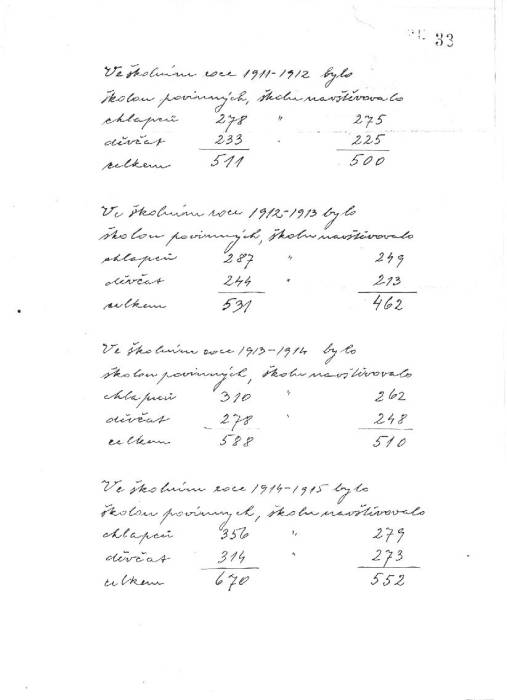 33
Ve školním roce 1911-1912 bylo
školou povinných, školu navštěvovalo
chlapců 278 " 275
děvčat 233 " 225
celkem 511 500
Ve školním roce 1912-1913 bylo
školou povinných, školu navštěvovalo
chlapců 287 " 249
děvčat 244 " 213
celkem 531 462
Ve školním roce 1913-1914 bylo
školou povinných, školu navštěvovalo
chlapců 310 " 262
děvčat 278 " 248
celkem 588 510
Ve školním roce 1914-1915 bylo
školou povinných, školu navštěvovalo
chlapců 356 " 279
děvčat 314 " 273
celkem 670 552